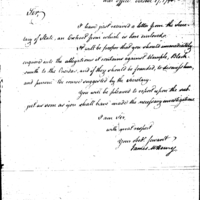 War Office October 27, 179
Sir,
I have just received a letter from the Secre-
tary of State, an Extract from which is here enclosed.
It will be proper that you should immediately
enquire into the allegations of on against Black-
smith to the Creeks; and if they should be founded, to dismiss him,
and pursue the course suggested by the Secretary.
You will be pleased to report upon the sub-
ject as soon as you shall have made the necessary investigations
I am Sir
with great respect
Your obed. servant
James McHenry